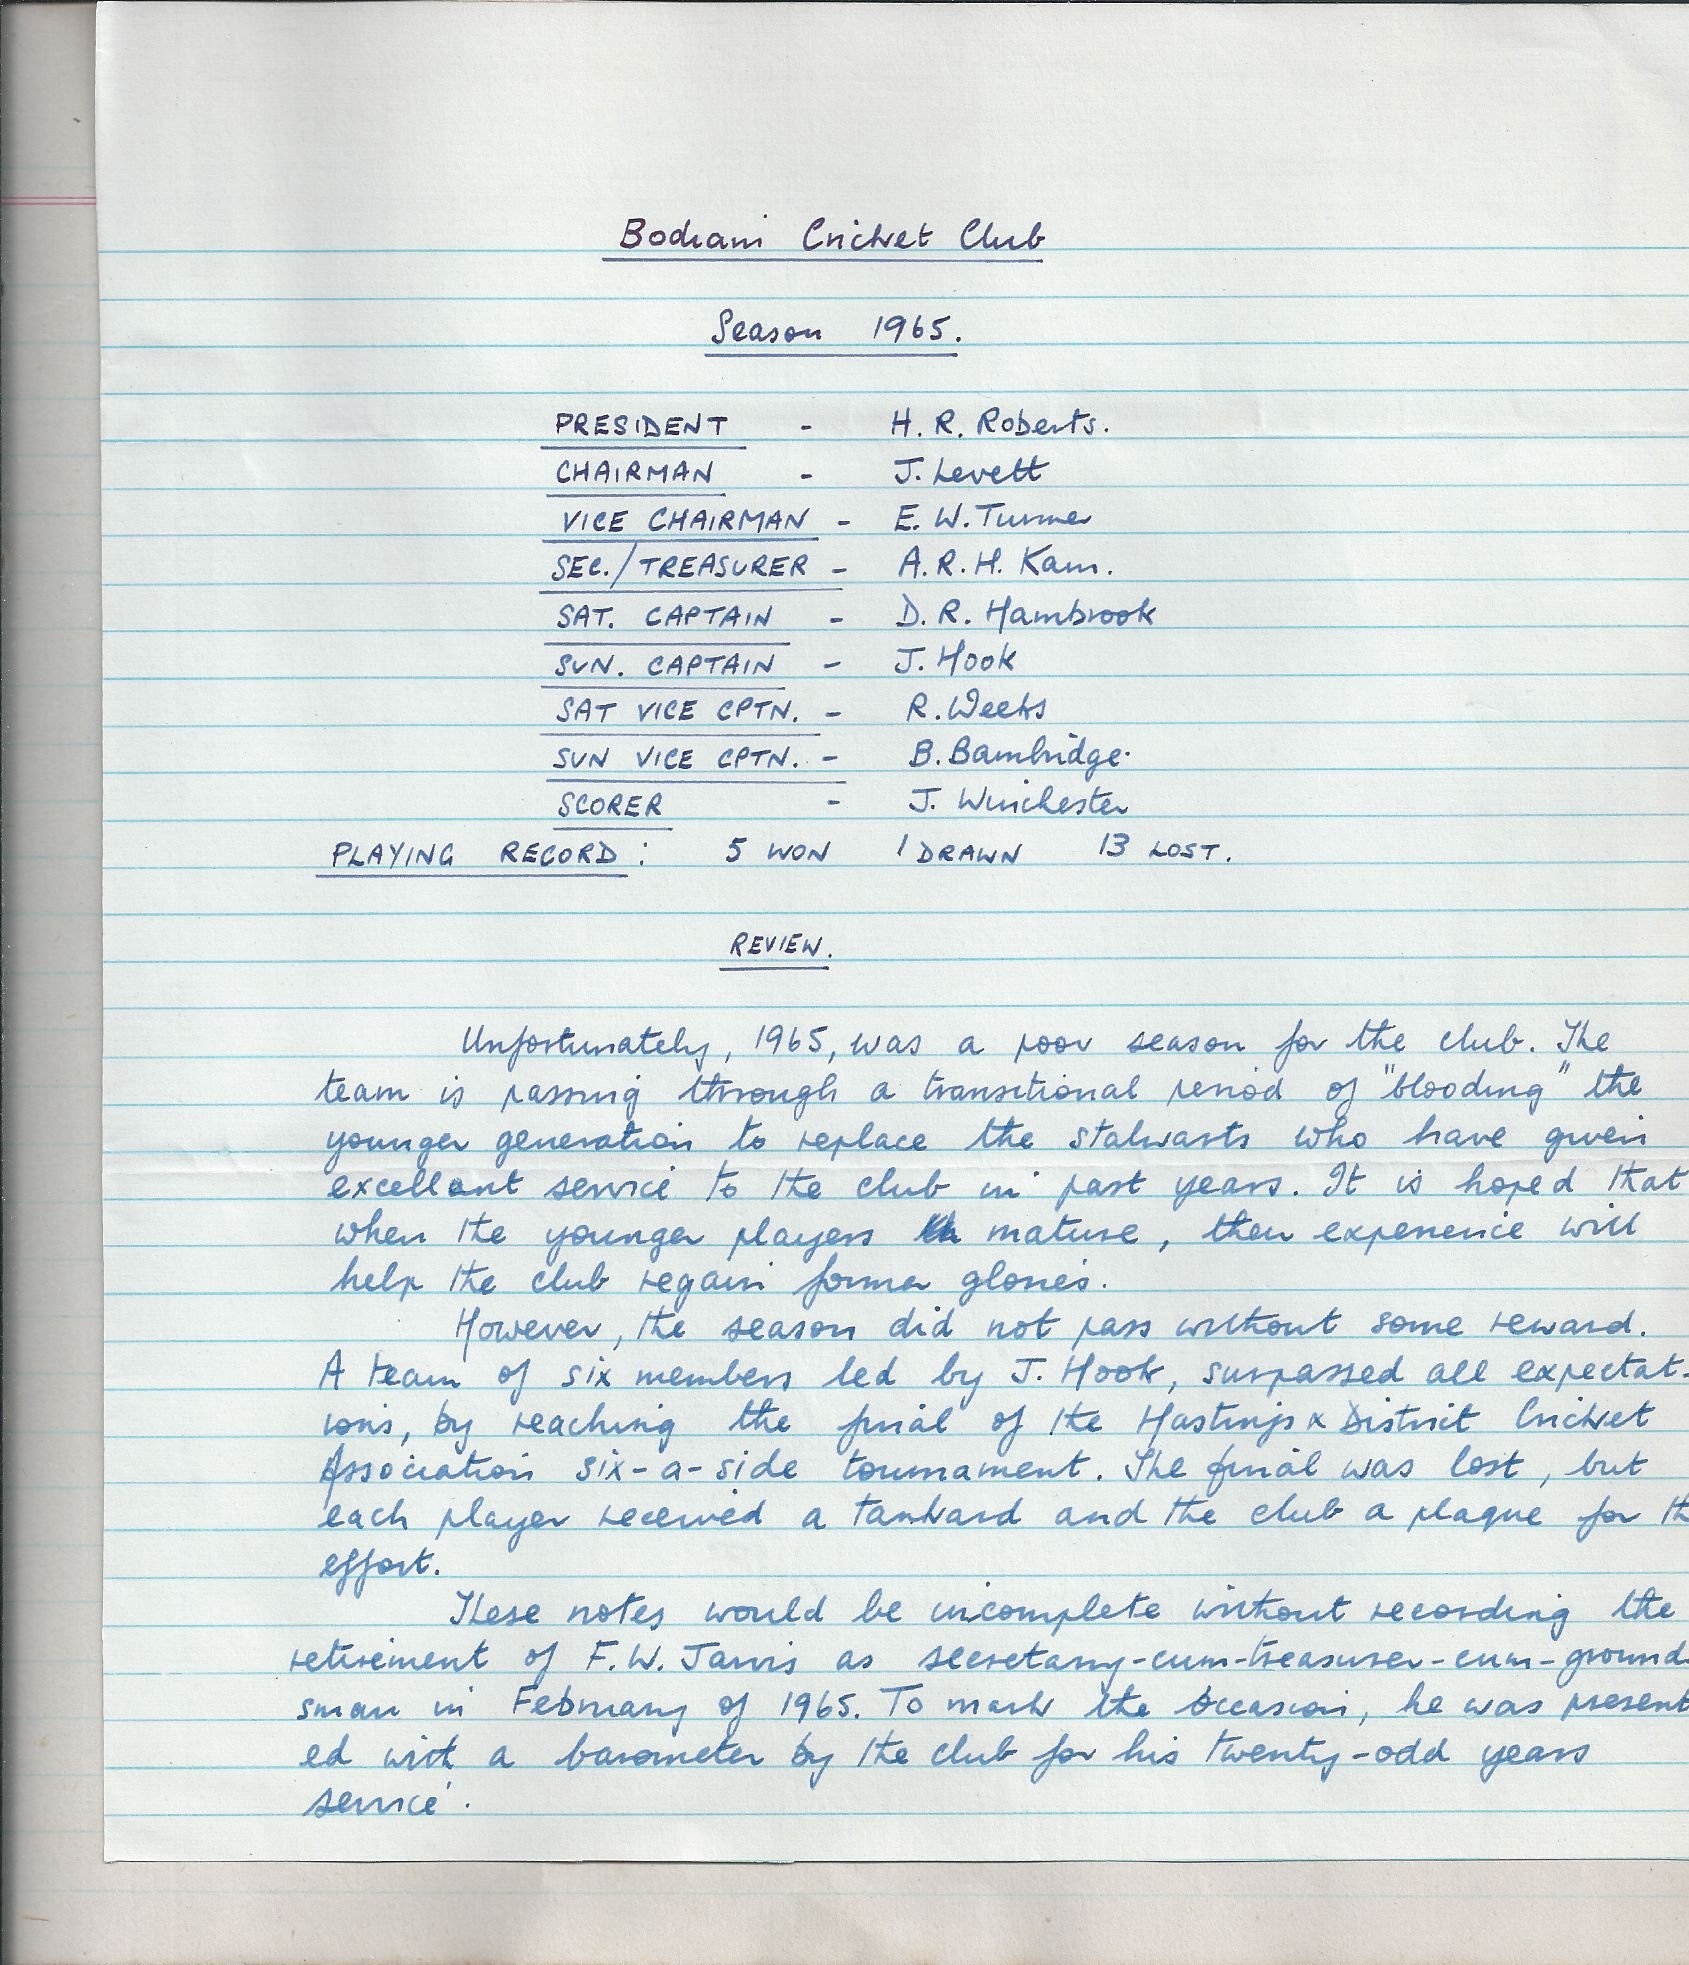 Bodiam Cricket Club
Season 1965.
PRESIDENT - H. R. Roberts.
CHAIRMAN - J. Levett
VICE CHAIRMAN - E. W. Turner
SEC./TREASURER - A.R.H. Kam.
SAT. CAPTAIN - D. R. Hambrook
SUN. CAPTAIN - J. Hook
SAT VICE CPTN. - R. Weeks
SUN VICE CPTN. - B. Bambridge.
SCORER - J. Winchester
PLAYING RECORD : 5 WON 1 DRAWN 13 LOST.
REVIEW.
Unfortunately, 1965, was a poor season for the club. The
team is passing through a transitional period of "blooding" the
younger generation to replace the stalwarts who have given
excellent service to the club in past years. It is hoped that
when the younger players mature, their experience will
help the club regain former glories.
However, the season did not pass without some reward.
A team of six members led by J. Hook, surpassed all expectat-
ions, by reaching the final of the Hastings & District Cricket
Association six-a-side tournament. The final was lost, but
each player received a tankard and the club a plaque for th
effort.
These notes would be incomplete without recording the
retirement of F. W. Jarvis as secretary-cum-treasurer-cum-grounds
sman in February of 1965. To mark the occasion, he was present
ed with a barometer by the club for his twenty-odd years
service.